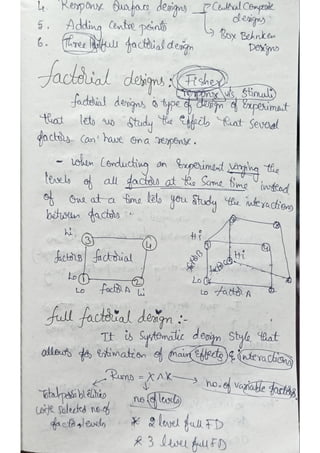 4. Response Surface designs → Central Composite designs
→ Box Behnken Designs
5. Adding Centre points
6. Three full factorial design
factorial designs: Fisher
response v/s Stimuli
factorial designs a type of design of Experiment
that lets us study the Effects that several
factors can have on a response.
- When Conducting an Experiment varying the
levels of all factors at the Same time instead
of one at a time lets you study the interactions
between factors.
Li
3 4
factor B factorial
Lo 1 2
Lo factor A Li
Hi
factor B
factor C
Hi
Lo
Lo factor A
full factorial design :-
It is Systematic design Style that
allows for estimation of main Effects & interactions
Runs = X^K → no. of variable factors
Total possible
with selected no. of
factors levels
no. of levels
* 2 level full FD
* 3 level full FD